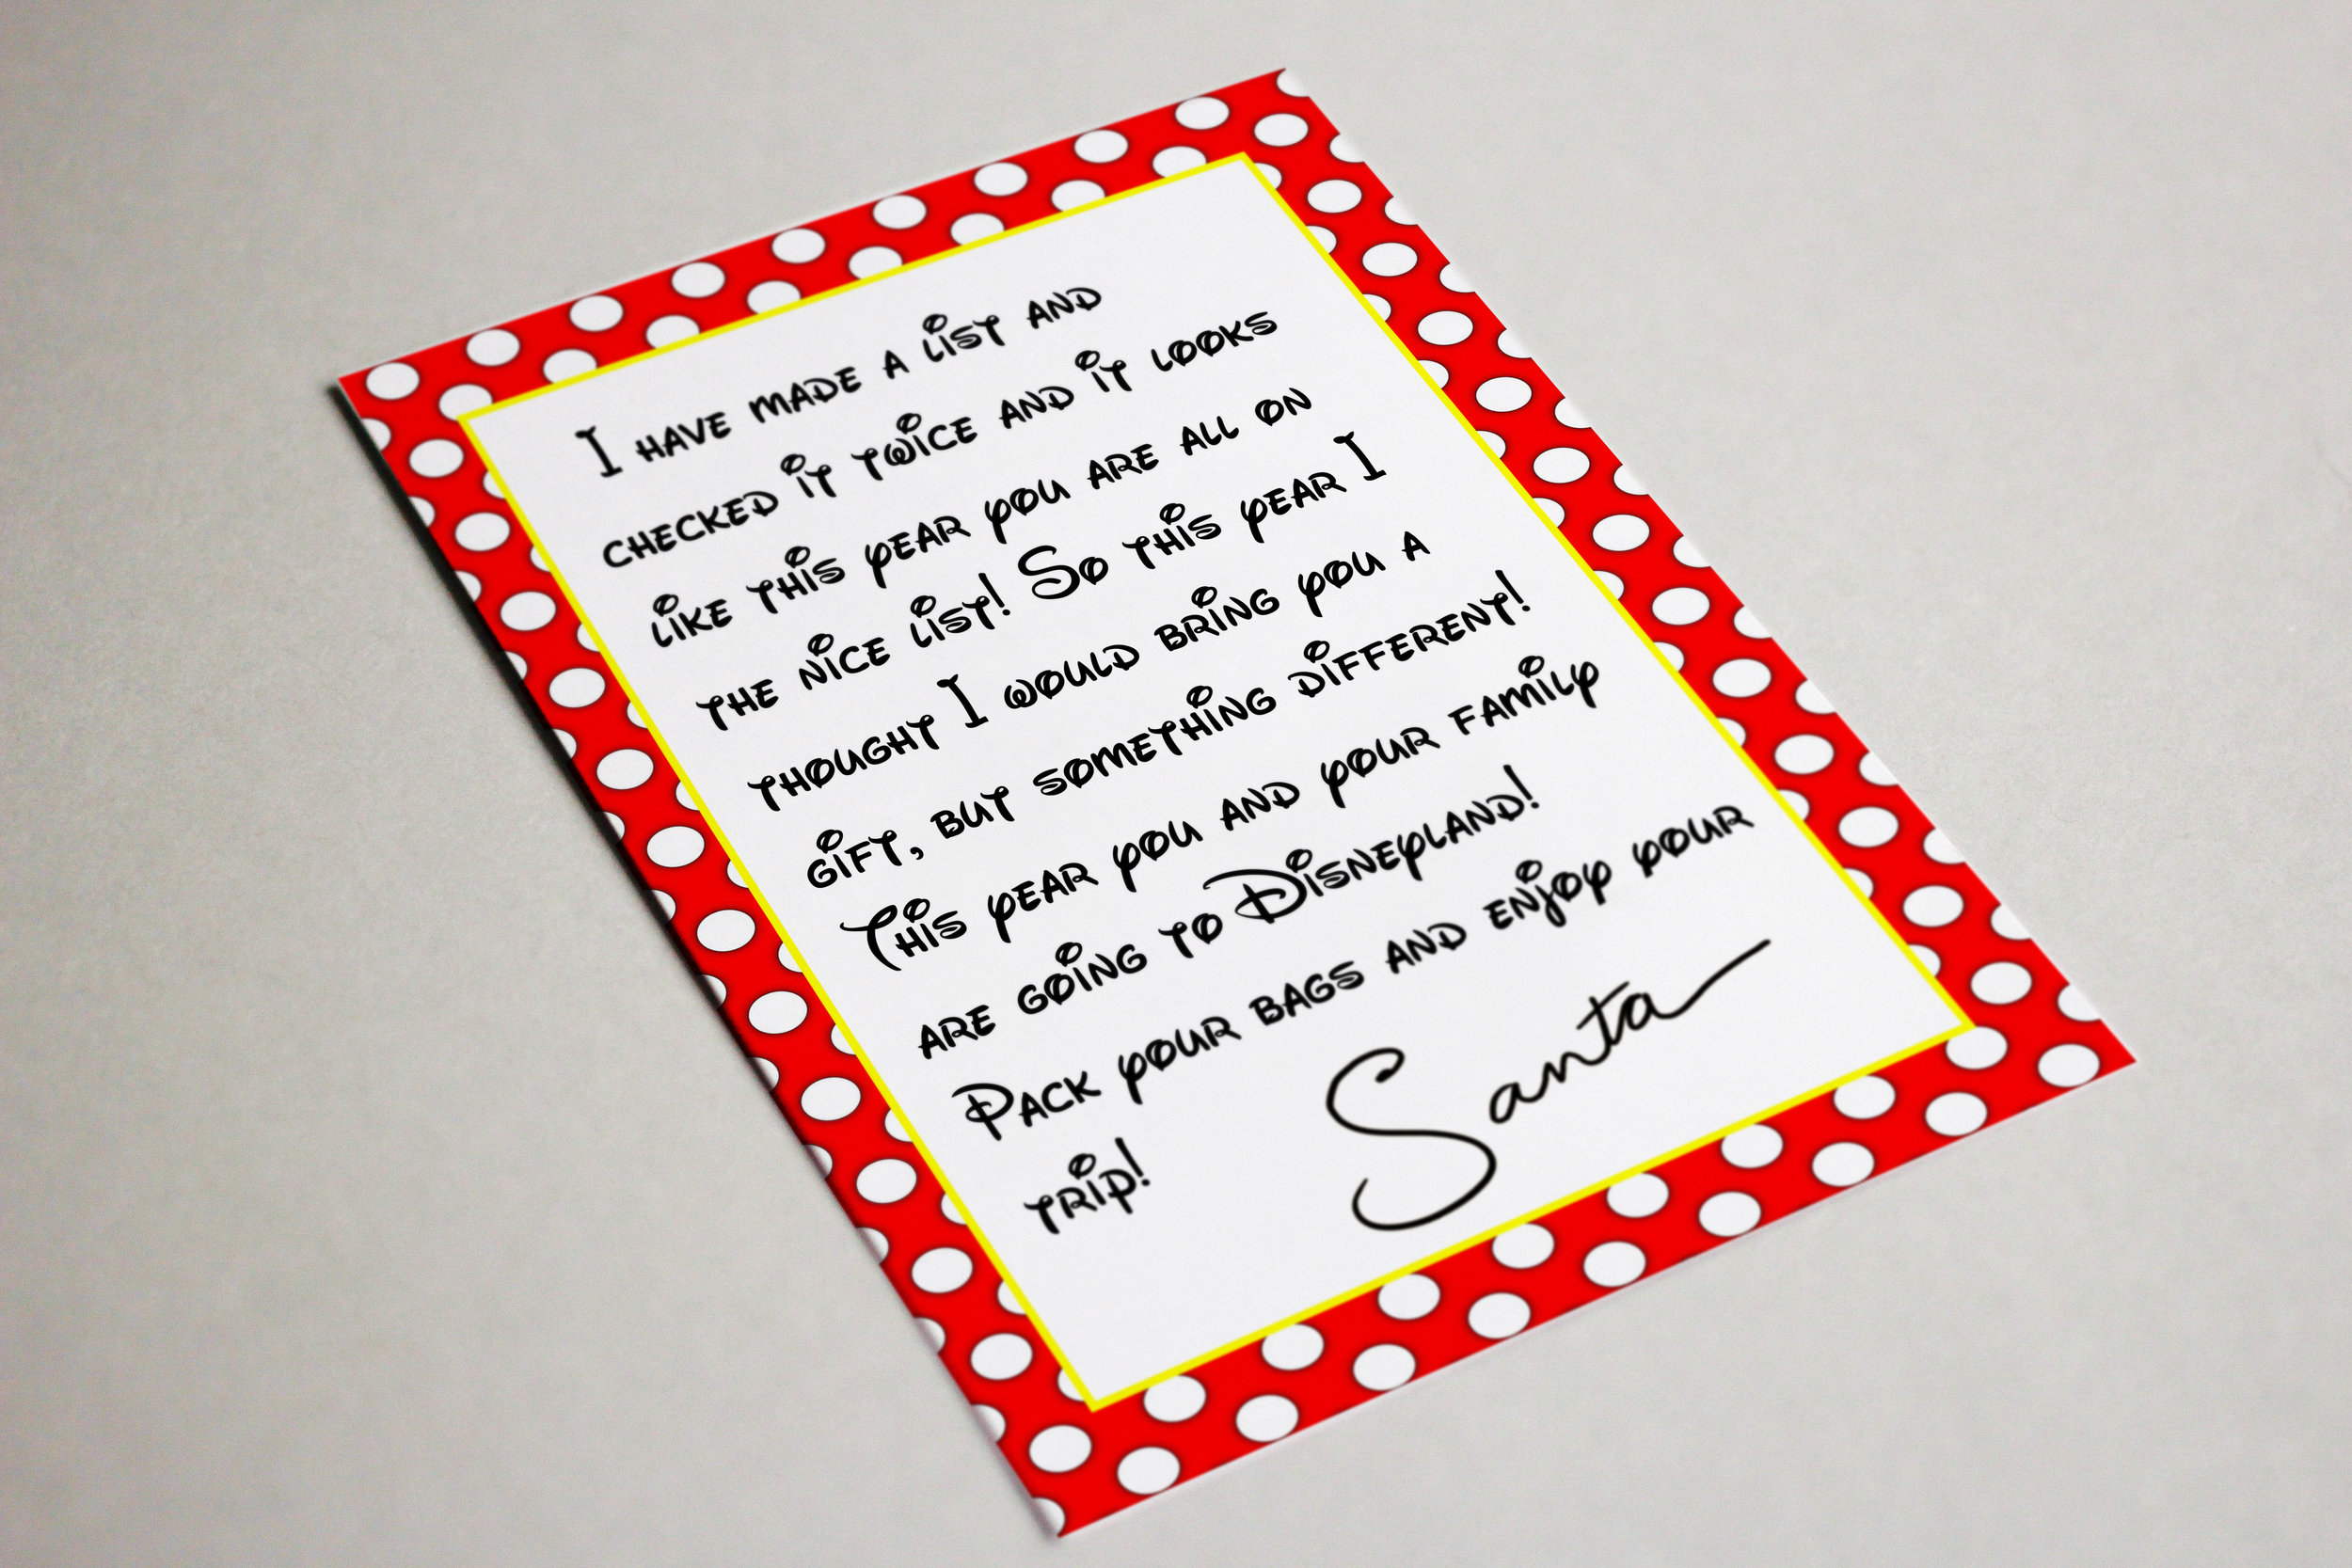 I have made a list and
checked it twice and it looks
like this year you are all on
the nice list! So this year I
thought I would bring you a
gift, but something different!
This year you and your family
are going to Disneyland!
Pack your bags and enjoy your
trip!
Santa